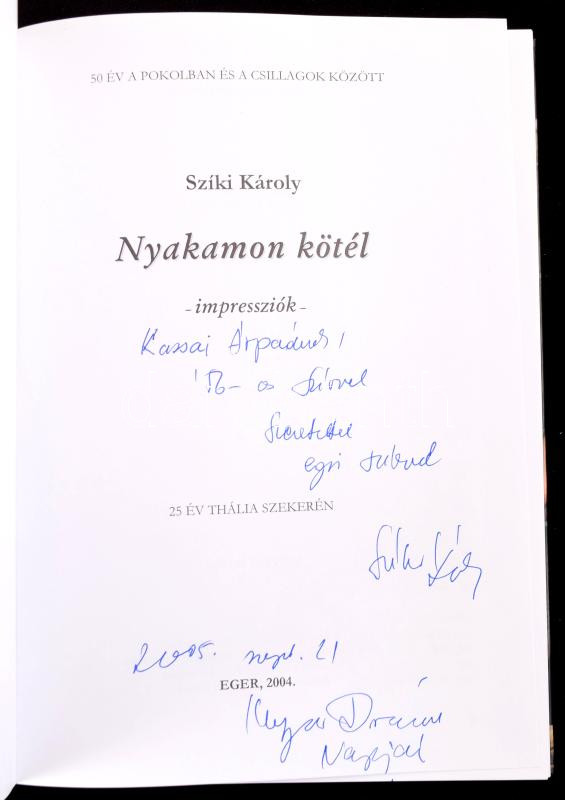 50 ÉV A POKOLBAN ÉS A CSILLAGOK KÖZÖTT
Szíki Károly
Nyakamon kötél
- impressziók -
Kassai Árpádnak!
'56-os szívvel
Szeretettel
egri
25 ÉV THÁLIA SZEKERÉN
Szíki Károly
2005. szept. 21
EGER, 2004.
Magyar Dráma
Napján